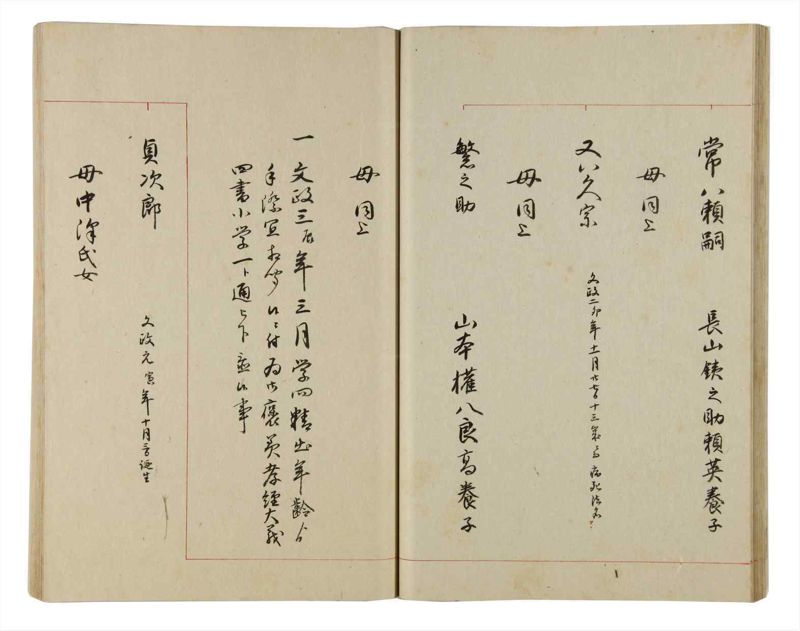 常八頼嗣 長山銕之助頼英養子
母同上
又八久宗 文政二卯年十一月廿七日十三歳ニ而病死法名
母同上
繁之助 山本權八良高養子
母同上
一 文政三辰年三月学問精出年齢より
手際宜相聞候ニ付為御褒美孝經大義
四書小学一ト通被下置候事
貞次郎 文政元寅年十月 誕生
母中澤氏女